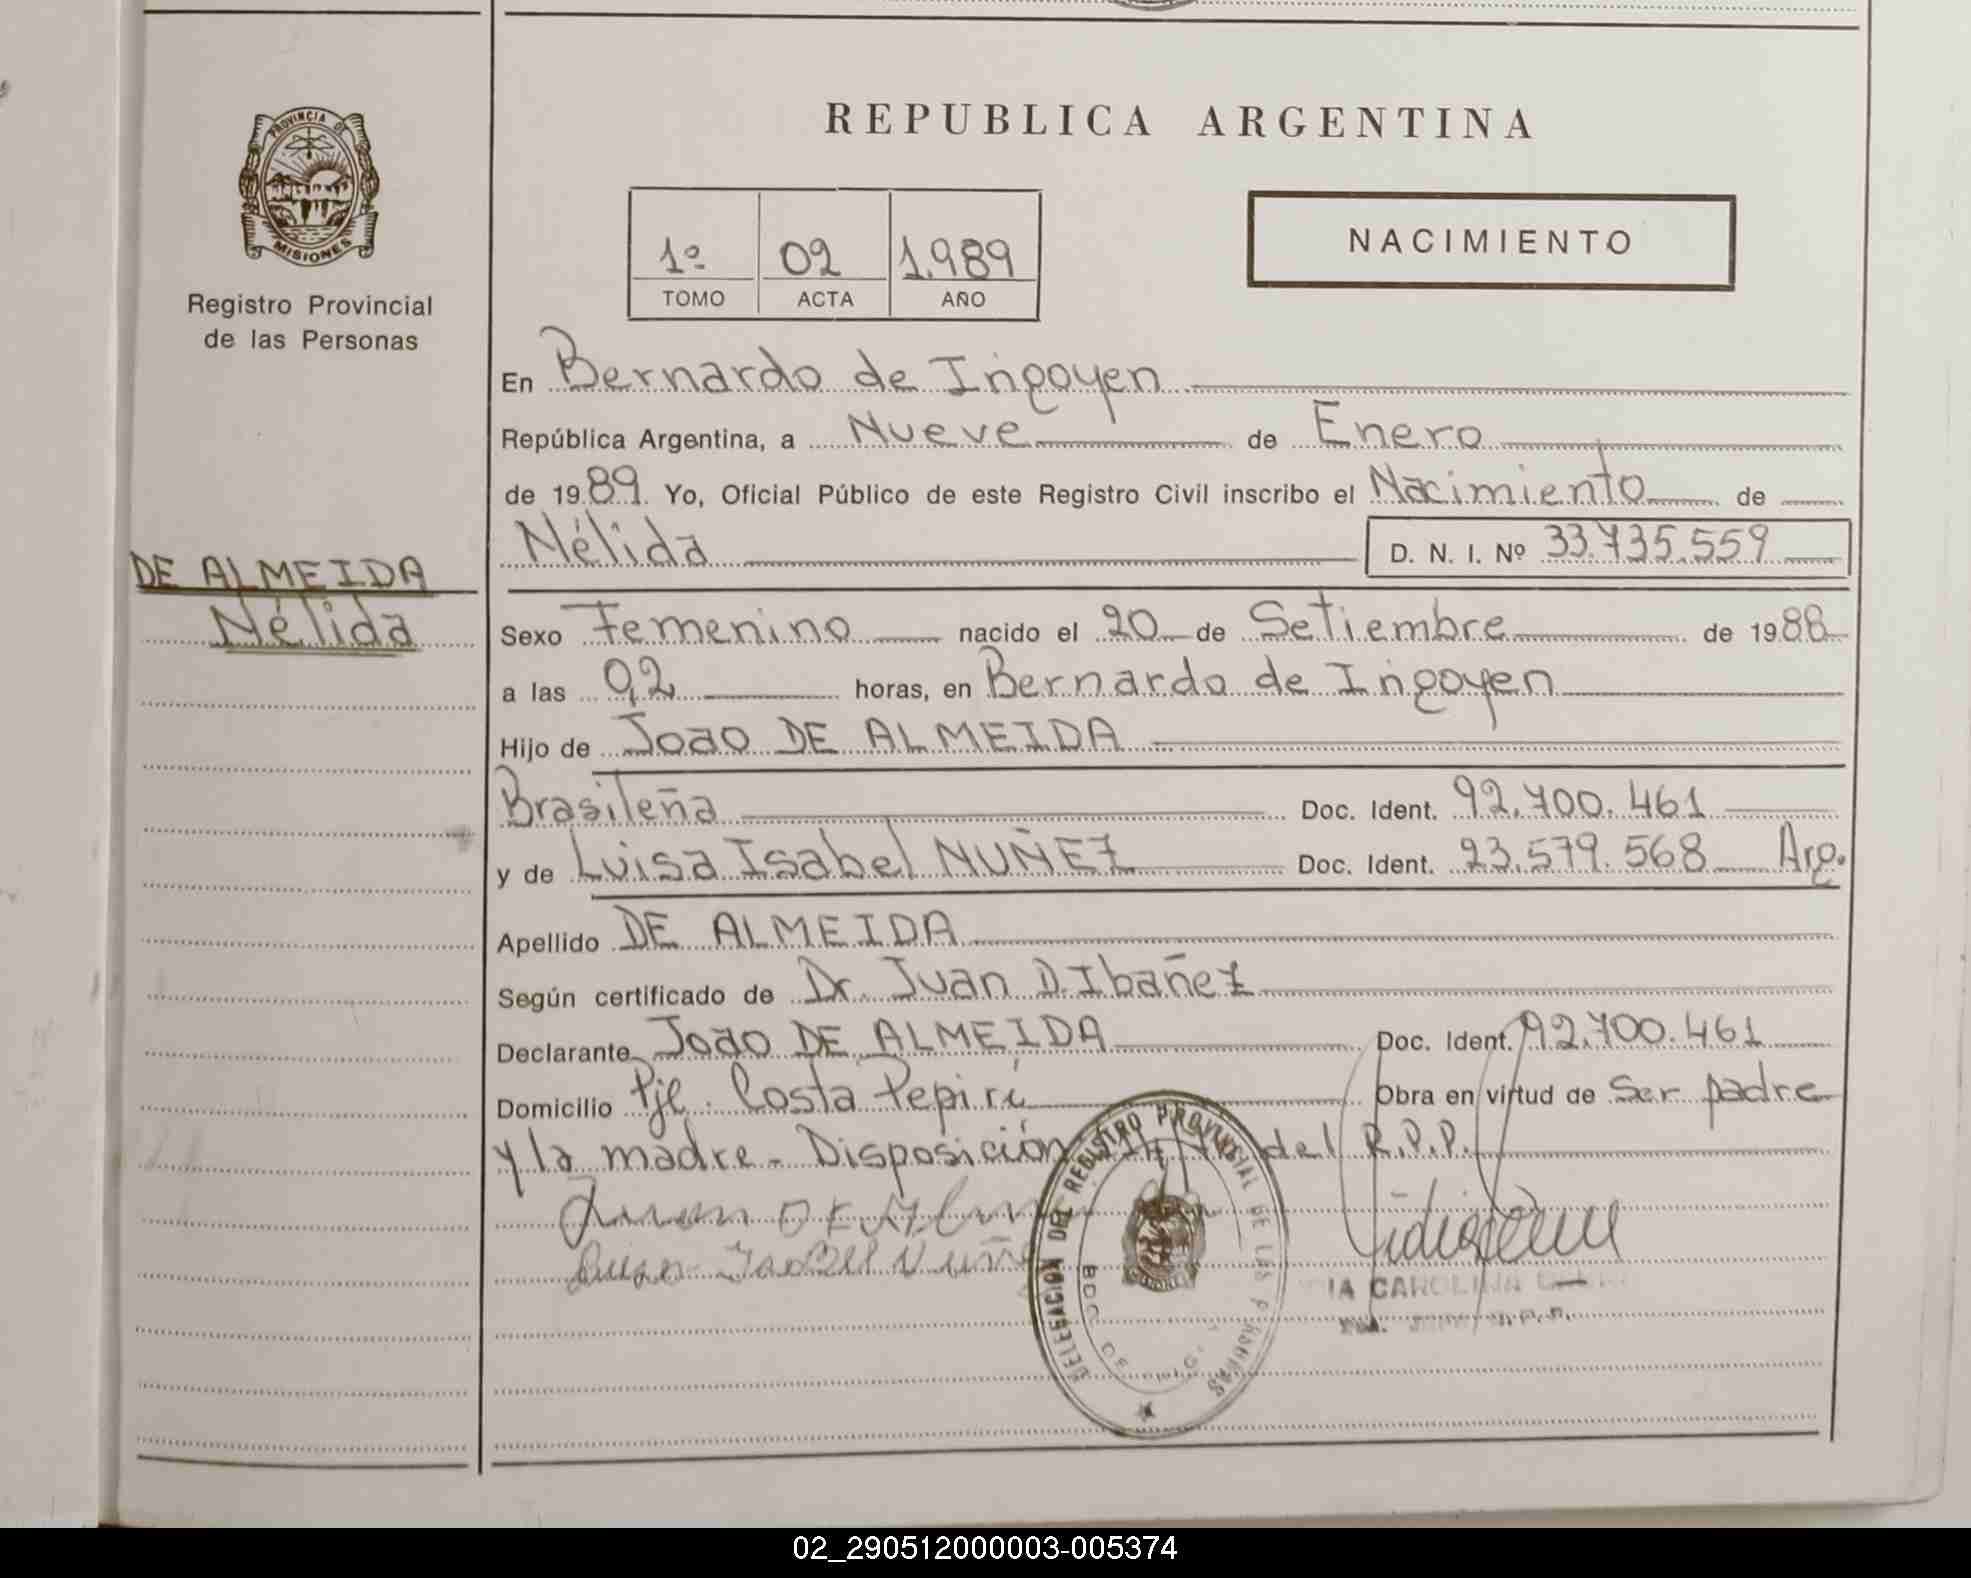 PROVINCIA DE
MISIONES
Registro Provincial
de las Personas
DE ALMEIDA
Nélida
REPUBLICA ARGENTINA
1º 02 1.989
TOMO ACTA AÑO
NACIMIENTO
En Bernardo de Irigoyen
República Argentina, a Nueve de Enero
de 1989. Yo, Oficial Público de este Registro Civil inscribo el Nacimiento de
Nélida D. N. I. Nº 33.735.559
Sexo Femenino nacido el 20 de Setiembre de 1988
a las 0,2 horas, en Bernardo de Irigoyen
Hijo de Joao DE ALMEIDA
Brasileña Doc. Ident. 92.700.461
y de Luisa Isabel NUÑEZ Doc. Ident. 23.579.568 Arg.
Apellido DE ALMEIDA
Según certificado de Dr. Juan D. Ibañez
Declarante Joao DE ALMEIDA Doc. Ident. 92.700.461
Domicilio Pje. Costa Pepirí Obra en virtud de Ser padre
y la madre - Disposición del R.P.P.
Luisa Isabel Nuñe
DELEGACION DEL REGISTRO PROVINCIAL DE LAS PERSONAS
BDO. DE IRIG.
IA CAROLINA
02_290512000003-005374